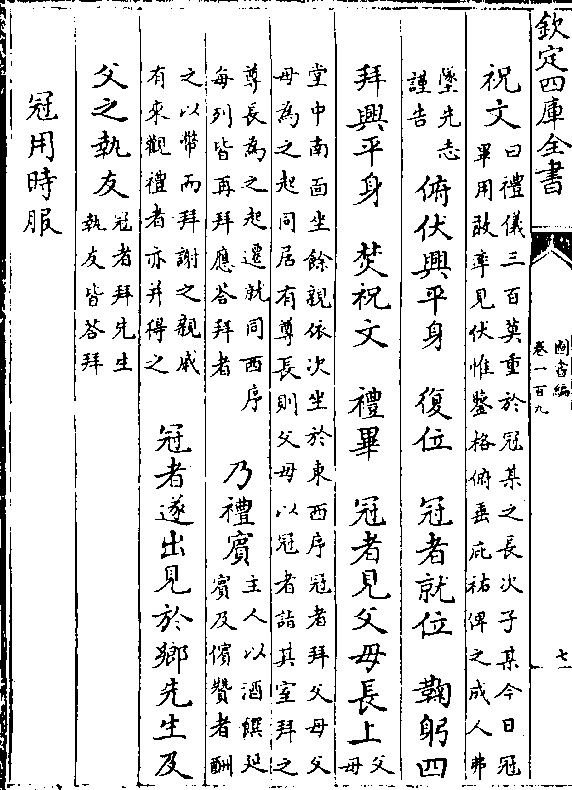 欽定四庫全書
圖書編
卷一百九
七
祝文
曰禮儀三百莫重於冠某之長次子某今日冠
畢用敢率見伏惟鑒格俯垂庇祐俾之成人弗
墜先志
謹告
俯伏興平身 復位 冠者就位 鞠躬四
拜興平身 焚祝文 禮畢 冠者見父母長上
父
母
堂中南面坐餘親依次坐於東西序冠者拜父母父
母為之起同居有尊長則父母以冠者詣其室拜之
尊長為之起還就同西序
每列皆再拜應答拜者
乃禮賓
主人以酒饌延
賓及儐贊者酬
之以幣而拜謝之親戚
有來觀禮者亦并得之
冠者遂出見於鄉先生及
父之執友
冠者拜先生
執友皆答拜
冠用時服